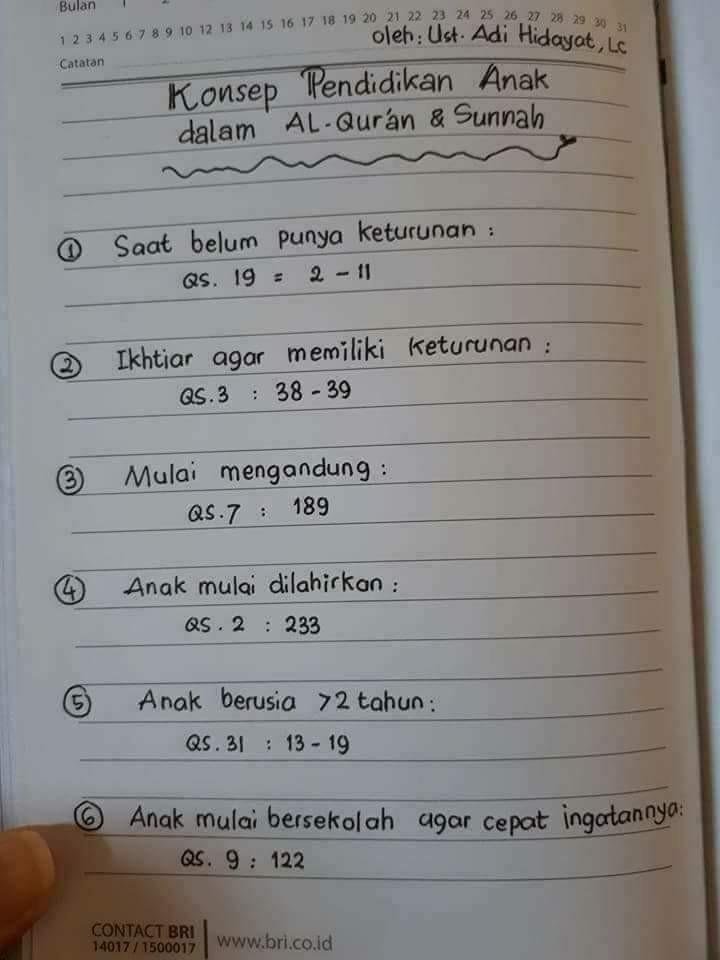 Bulan 1 2
1 2 3 4 5 6 7 8 9 10 12 13 14 15 16 17 18 19 20 21 22 23 24 25 26 27 28 29 30 31
oleh: Ust. Adi Hidayat, Lc
Catatan
Konsep Pendidikan Anak
dalam AL-Qur'an & Sunnah
① Saat belum punya keturunan :
QS. 19 = 2 - 11
② Ikhtiar agar memiliki keturunan :
QS.3 : 38 - 39
③ Mulai mengandung :
QS.7 : 189
④ Anak mulai dilahirkan :
QS. 2 : 233
⑤ Anak berusia >2 tahun :
QS. 31 : 13 - 19
⑥ Anak mulai bersekolah agar cepat ingatannya:
QS. 9 : 122
CONTACT BRI
14017 / 1500017
www.bri.co.id